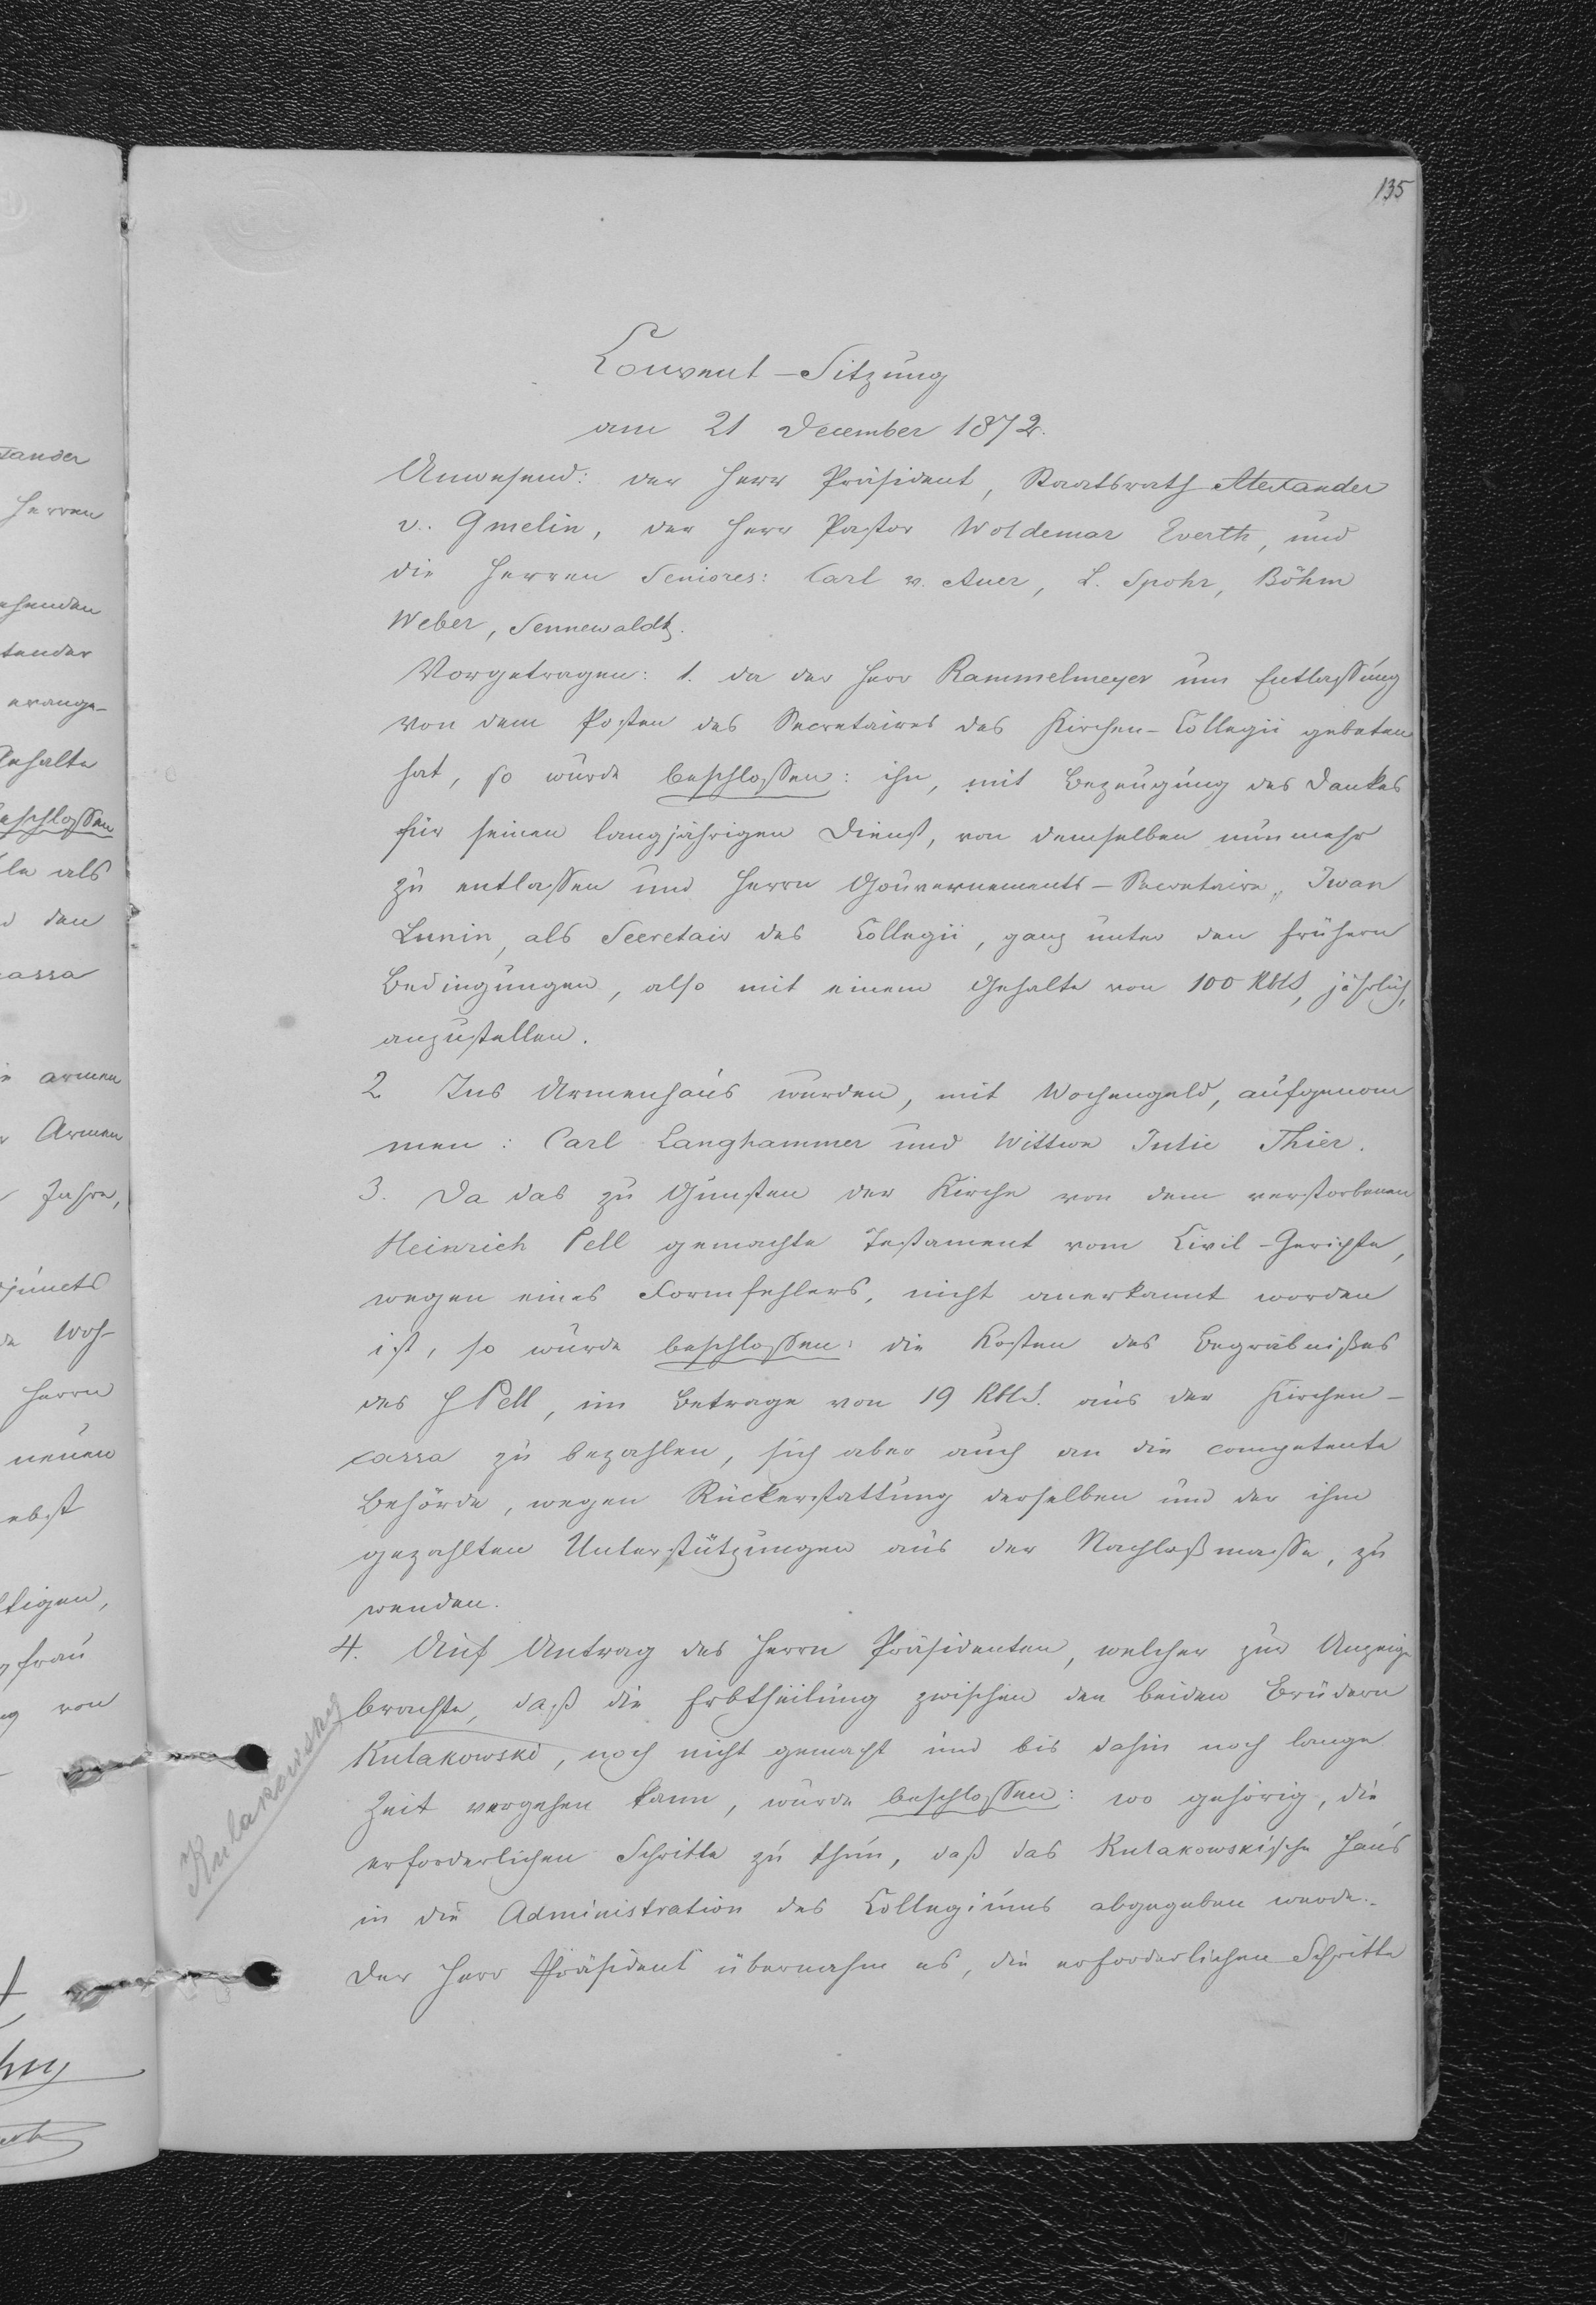 135
Convent-Sitzung
am 21 December 1872.
Anwesend: der Herr Präsident, Staatsrath Alexander
v. Gmelin, der Herr Pastor Woldemar Everth, und
die Herren Seniores: Carl v. Auer, L. Spohr, Böhm
Weber, Sennewaldt.
Vorgetragen: 1. da der Herr Rammelmeyer um Entlaßung
von dem Posten des Secretaires des Kirchen-Collegii gebeten
hat, so wurde beschloßen: ihn, mit Bezeugung des Dankes
für seinen langjährigen Dienst, von demselben nunmehr
zu entlaßen und Herrn Gouvernements-Secretaire, Iwan
Lunin, als Secretair des Collegii, ganz unter den frühern
Bedingungen, also mit einem Gehalte von 100 RblS, jährlich,
anzustellen.
2 Ins Armenhaus wurden, mit Wochengeld, aufgenom
men: Carl Langhammer und Wittwe Julie Thier.
3. Da das zu Gunsten der Kirche von dem verstorbenen
Heinrich Pell gemachte Testament vom Civil-Gerichte,
wegen eines Formfehlers, nicht anerkannt worden
ist, so wurde beschloßen: die Kosten des Begräbnißes
des H Pell, im Betrage von 19 RblS. aus der Kirchen-
cassa zu bezahlen, sich aber auch an die competente
Behörde, wegen Rückerstattung derselben und der ihm
gezahlten Unterstützungen aus der Nachlaßmaße, zu
wenden.
4. Auf Antrag des Herrn Präsidenten, welcher zur Anzeige
brachte, daß die Erbtheilung zwischen den beiden Brüdern
Kulakowski, noch nicht gemacht und bis dahin noch lange
Zeit vergehen kann, wurde beschloßen: wo gehörig, die
erforderlichen Schritte zu thun, daß das Kulakowskische Haus
in die Administration des Collegiums abgegeben werde.
Der Herr Präsident übernahm es, die erforderlichen Schritte
Kulakowsky